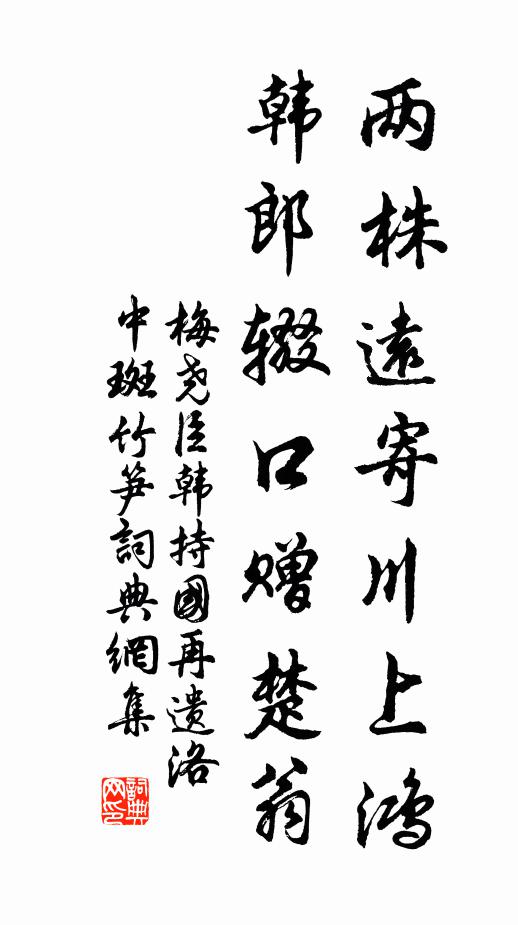 两株遠寄川上鸿
韩郎辍口赠楚翁
梅尧臣韩持國再遗洛
中斑竹笋詞典網集
詞典网印